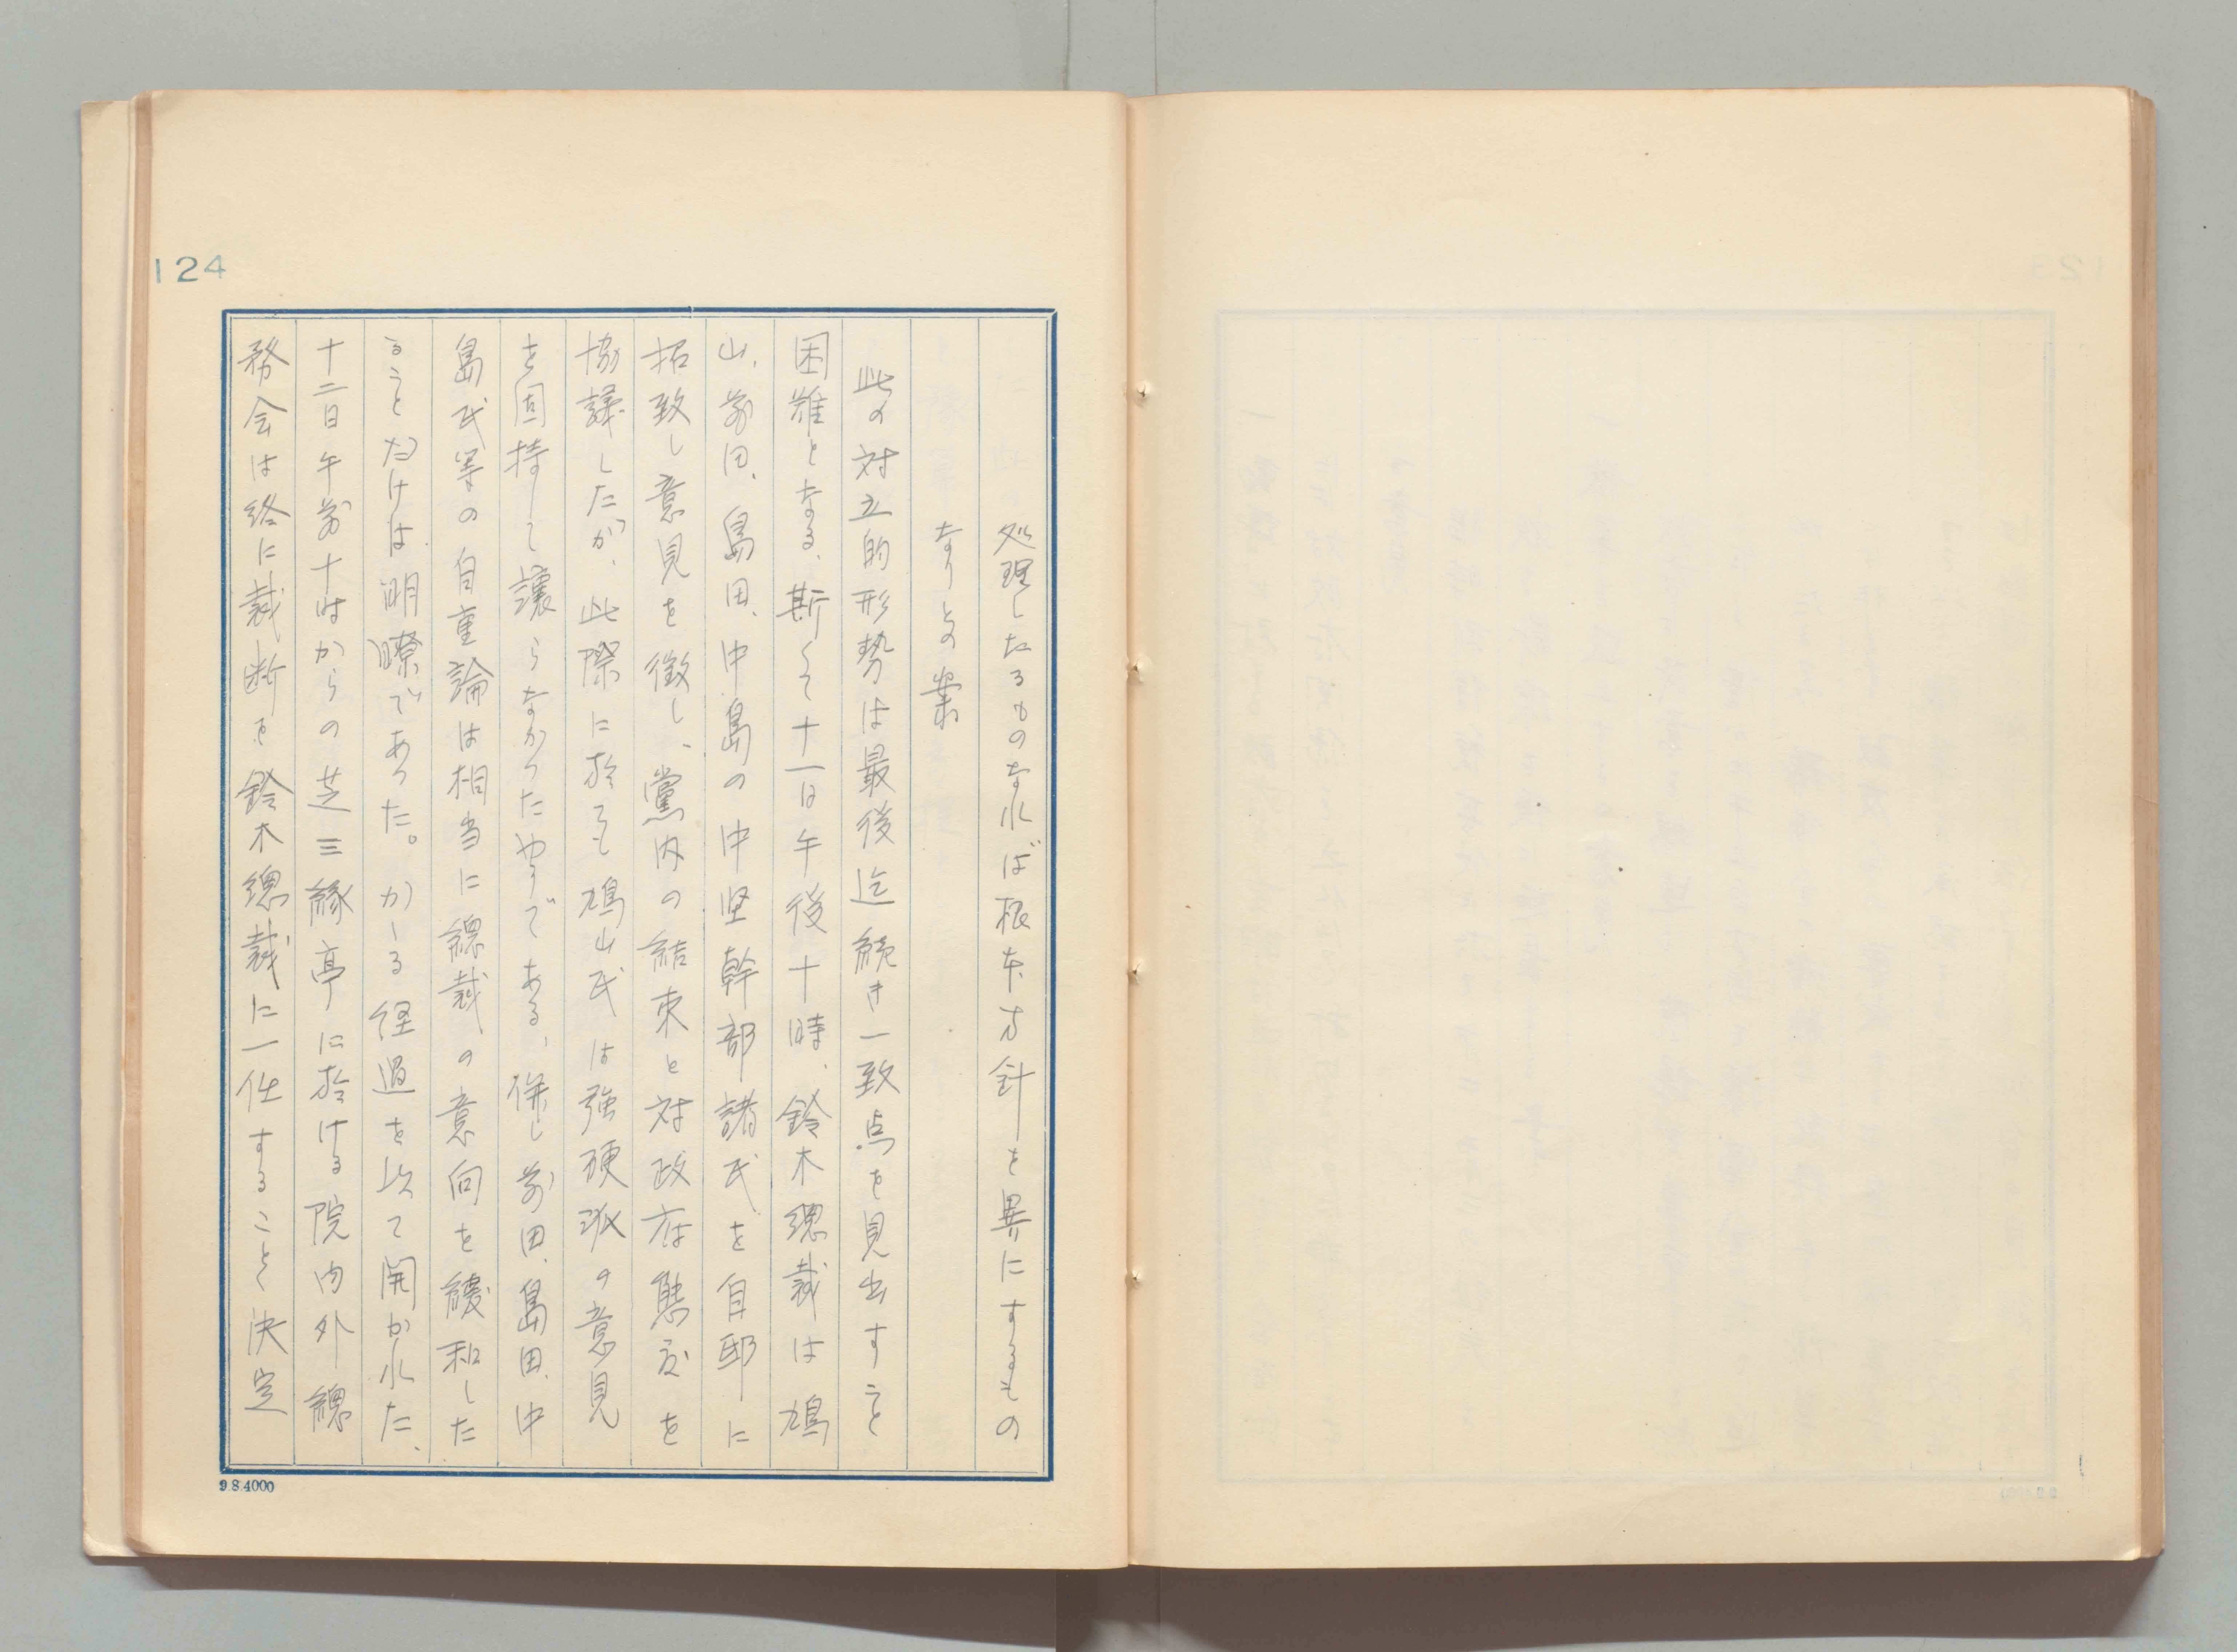 124
処理したるものなれば根本方針を異にするもの
なりとの案
此の対立的形勢は最後迄続き一致点を見出すこと
困難となる、斯くて十一日午後十時、鈴木總裁は鳩
山、前田、島田、中島の中堅幹部諸氏を自邸に
招致し意見を徴し、黨内の結束と対政府態度を
協議したが、此際に於ても鳩山氏は強硬派の意見
を固持して讓らなかつたやうである、併し前田、島田、中
島氏等の自重論は相当に總裁の意向を緩和した
ることだけは明瞭であつた。かゝる経過を以て開かれた、
十二日午前十时からの芝三緣亭に於ける院内外總
務会は終に裁断を鈴木總裁に一任することゝ決定
9.8.4000